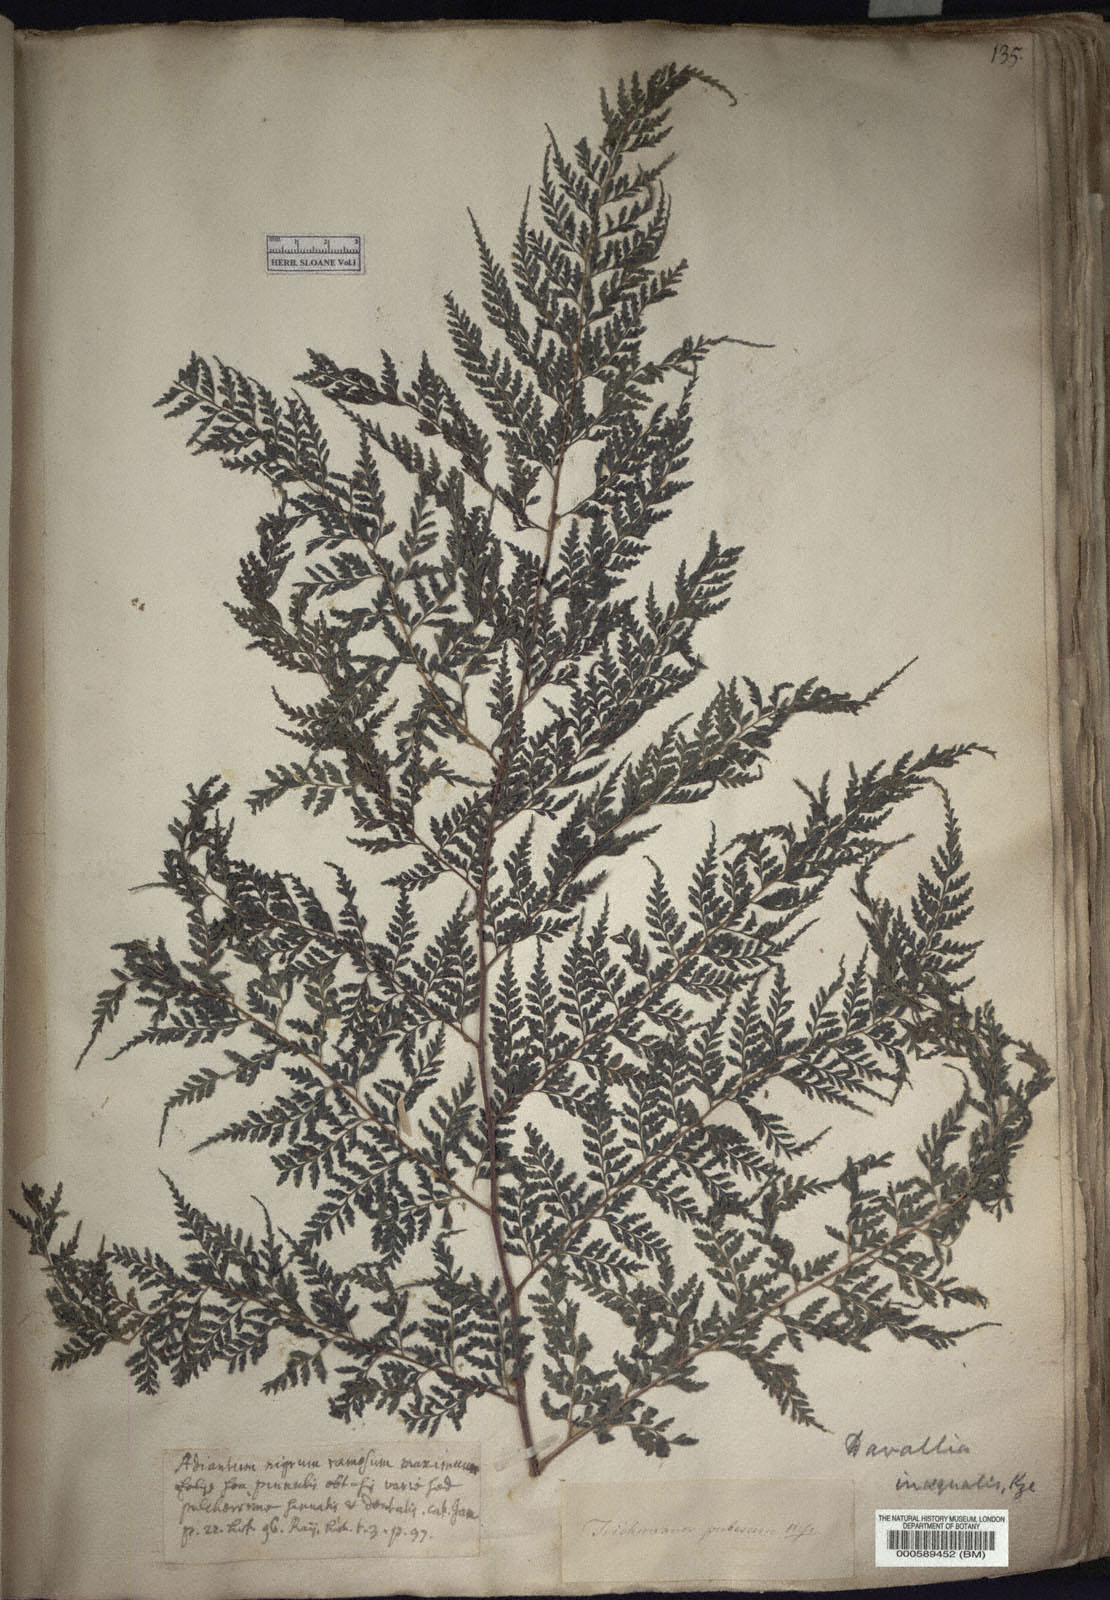 135.
mm 1 2 3
HERB. SLOANE Vol.1
Adiantum nigrum ramosum maximum
foliis seu pinnulis obtusis varie sed
pulcherrime sinuatis & dentatis. Cat. Jam
p. 22. hist. 96. Raij. hist. t. 3. p. 97.
Trichomanes pubescens
Davallia
inaequalis, Kze
THE NATURAL HISTORY MUSEUM, LONDON
DEPARTMENT OF BOTANY
000589452 (BM)